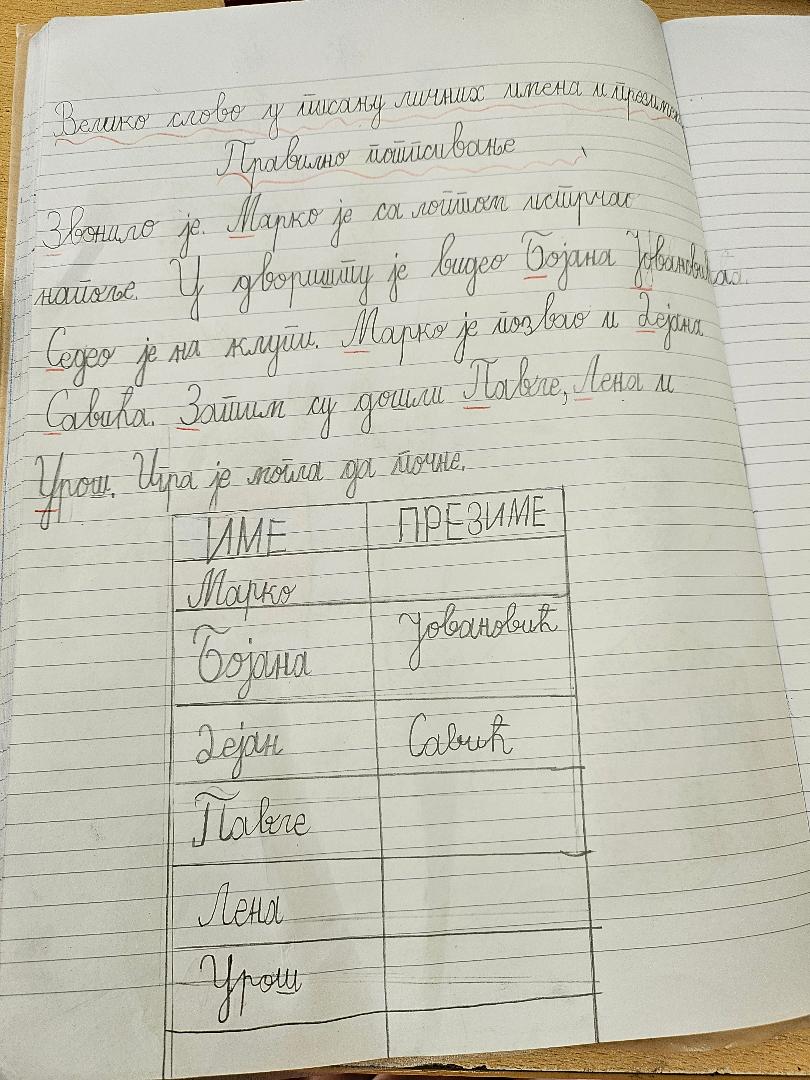 Велико слово у писању личних имена и презимена
Правилно потписивање
Звонило је. Марко је са лоптом истрчао
напоље. У дворишту је видео Бојана Јовановића.
Седео је на клупи. Марко је позвао и Дејана
Савића. Затим су дошли Павле, Лена и
Урош. Игра је могла да почне.
ИМЕ ПРЕЗИМЕ
Марко
Бојана Јовановић
Дејан Савић
Павле
Лена
Урош